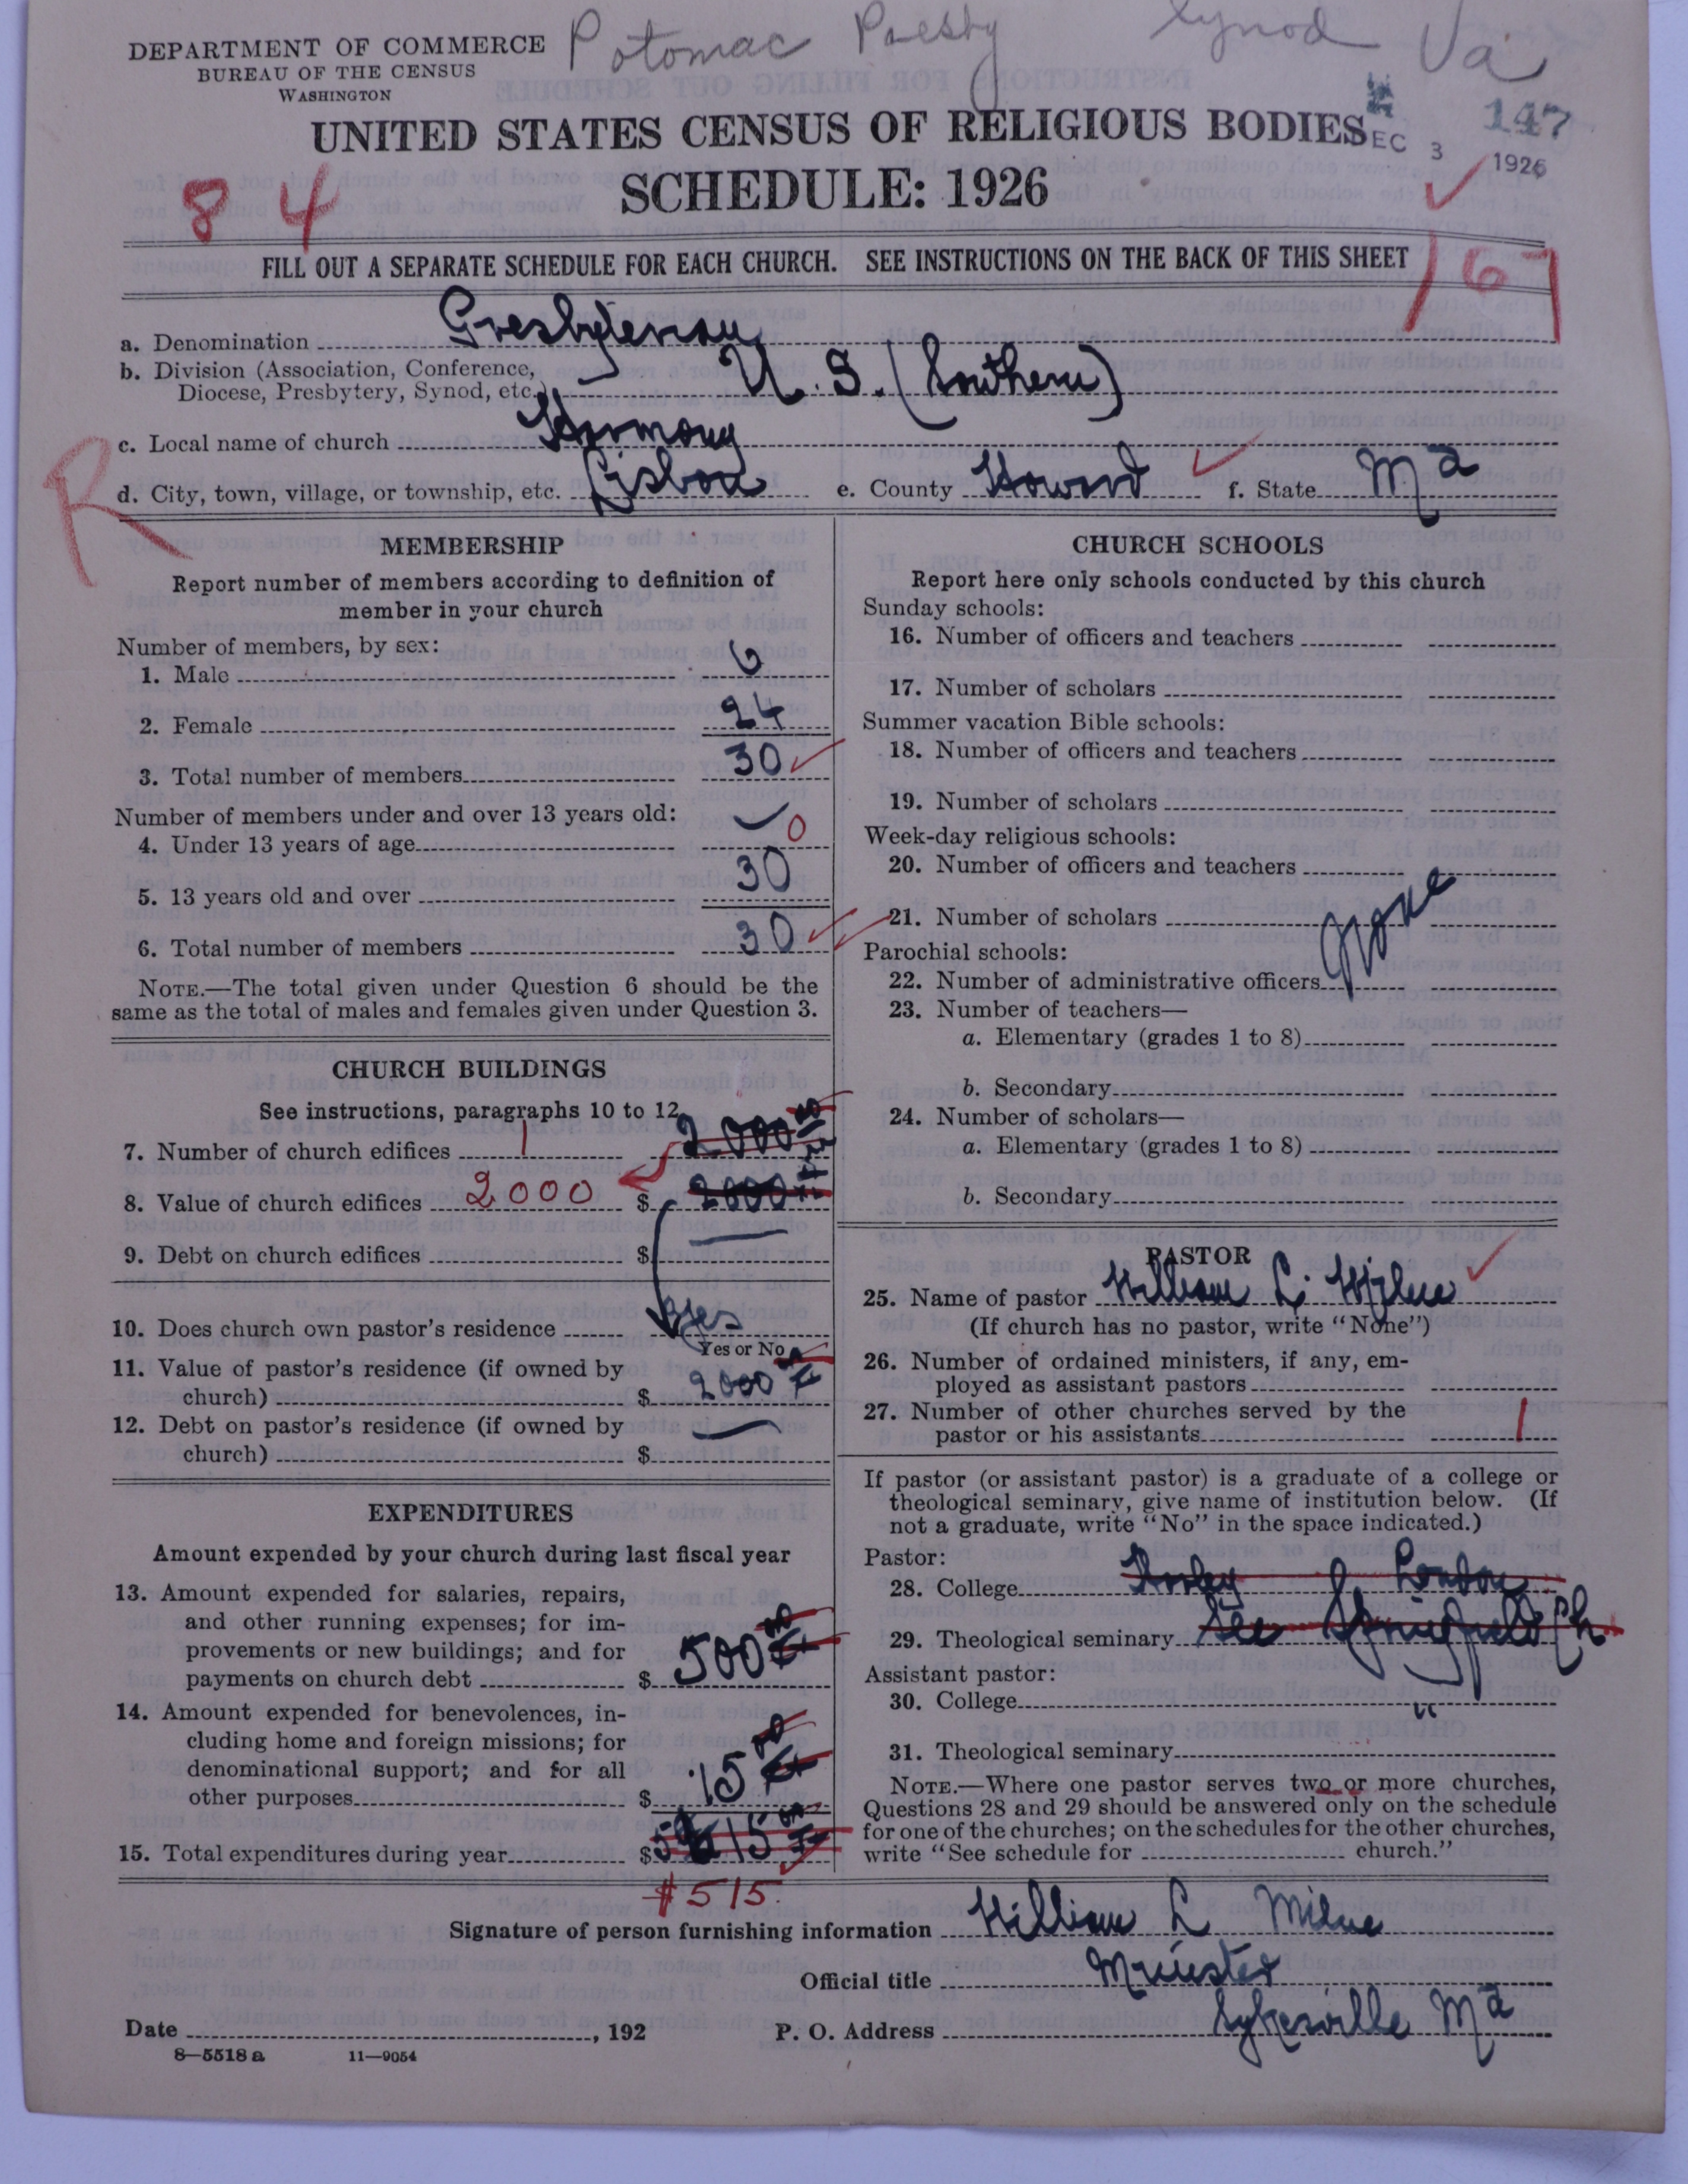 Potomac Presby Synod Va
DEPARTMENT OF COMMERCE
BUREAU OF THE CENSUS
WASHINGTON
147
UNITED STATES CENSUS OF RELIGIOUS BODIES
DEC 3 1926
84
SCHEDULE: 1926
FILL OUT A SEPARATE SCHEDULE FOR EACH CHURCH. SEE INSTRUCTIONS ON THE BACK OF THIS SHEET
167
a. Denomination Presbyterian
b. Division (Association, Conference,
Diocese, Presbytery, Synod, etc.) U. S. (Southern)
c. Local name of church Harmony
R
d. City, town, village, or township, etc. Lisbon e. County Howard f. State Md
MEMBERSHIP
Report number of members according to definition of
member in your church
Number of members, by sex:
1. Male 6
2. Female 24
3. Total number of members 30
Number of members under and over 13 years old:
4. Under 13 years of age 0
5. 13 years old and over 30
6. Total number of members 30
NOTE.—The total given under Question 6 should be the
same as the total of males and females given under Question 3.
CHURCH BUILDINGS
See instructions, paragraphs 10 to 12
7. Number of church edifices 1 2000
8. Value of church edifices 2000 $ 2000
9. Debt on church edifices $
10. Does church own pastor's residence Yes
Yes or No
11. Value of pastor's residence (if owned by
church) $ 2000
12. Debt on pastor's residence (if owned by
church) $
EXPENDITURES
Amount expended by your church during last fiscal year
13. Amount expended for salaries, repairs,
and other running expenses; for im-
provements or new buildings; and for
payments on church debt $ 500
14. Amount expended for benevolences, in-
cluding home and foreign missions; for
denominational support; and for all
other purposes $ 15
15. Total expenditures during year $ 515
$515
CHURCH SCHOOLS
Report here only schools conducted by this church
Sunday schools:
16. Number of officers and teachers
17. Number of scholars
Summer vacation Bible schools:
18. Number of officers and teachers
19. Number of scholars
Week-day religious schools:
20. Number of officers and teachers
21. Number of scholars
None
Parochial schools:
22. Number of administrative officers
23. Number of teachers—
a. Elementary (grades 1 to 8)
b. Secondary
24. Number of scholars—
a. Elementary (grades 1 to 8)
b. Secondary
PASTOR
25. Name of pastor William L. Milne
(If church has no pastor, write "None")
26. Number of ordained ministers, if any, em-
ployed as assistant pastors
27. Number of other churches served by the
pastor or his assistants 1
If pastor (or assistant pastor) is a graduate of a college or
theological seminary, give name of institution below. (If
not a graduate, write "No" in the space indicated.)
Pastor:
28. College London
29. Theological seminary See Springfield Ch
Assistant pastor:
30. College "
31. Theological seminary
NOTE.—Where one pastor serves two or more churches,
Questions 28 and 29 should be answered only on the schedule
for one of the churches; on the schedules for the other churches,
write "See schedule for church."
Signature of person furnishing information William L Milne
Official title Minister
Date , 192 P. O. Address Sykesville Md
8—5518a 11—9054